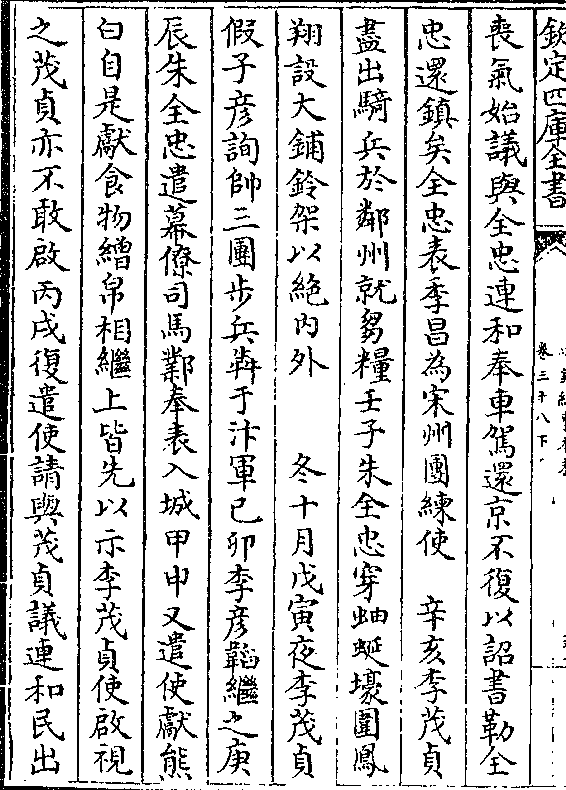 欽定四庫全書
卷三十八下
喪氣始議與全忠連和奉車駕還京不復以詔書勒全
忠還鎮矣全忠表季昌為宋州團練使　辛亥李茂貞
盡出騎兵於鄰州就芻糧壬子朱全忠穿蚰蜒壕圍鳳
翔設犬鋪鈴架以絶内外　冬十月戊寅夜李茂貞
假子彦詢帥三團步兵犇于汴軍己卯李彦韜繼之庚
辰朱全忠遣幕僚司馬鄴奉表入城甲申又遣使獻熊
白自是獻食物繒帛相繼上皆先以示李茂貞使啟視
之茂貞亦不敢啟丙戌復遣使請與茂貞議連和民出